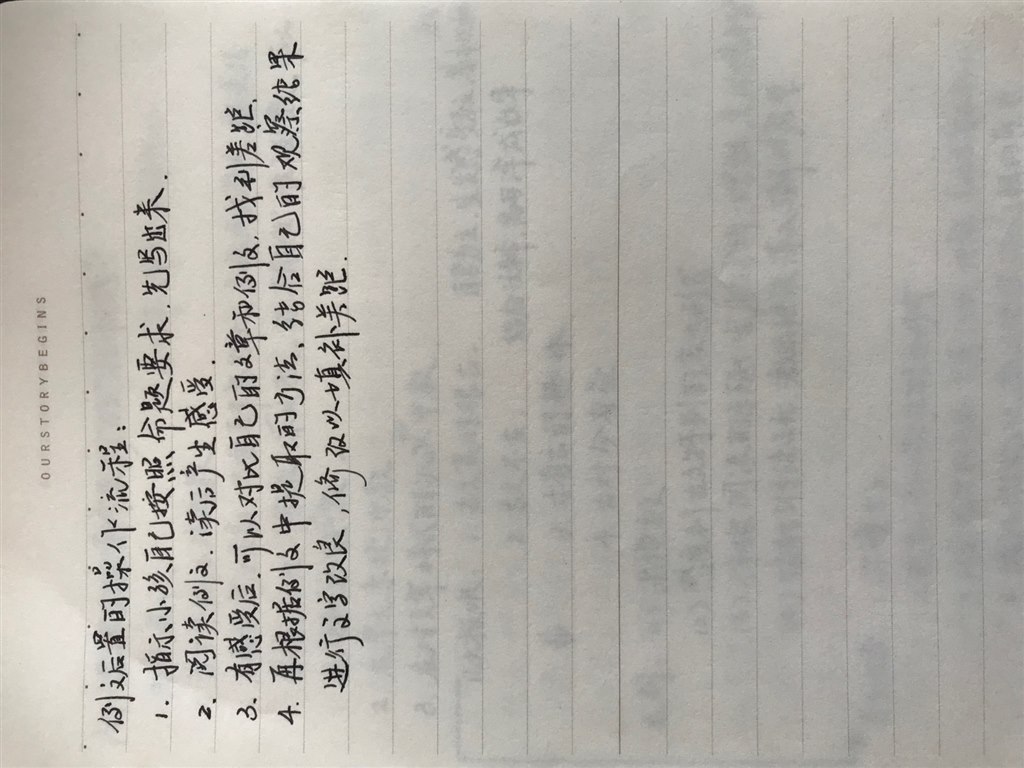 OURSTORYBEGINS
例文后置的操作流程：
1. 指示小孩自己按照命题要求，先写出来.
2. 阅读例文.读后产生感受.
3. 有感受后.可以对比自己的文章和例文,找到差距.
4. 再根据例文中提取的方法、结合自己的观察结果
进行文字改良,修改以填补差距.